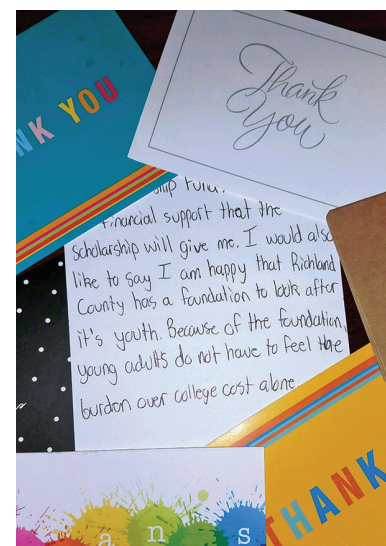 NK YOU
Thank
You
ship Fund.
Financial support that the
scholarship will give me. I would also
like to say I am happy that Richland
County has a foundation to look after
it's youth. Because of the foundation,
young adults do not have to feel the
burdon over college cost alone
THANK
a n s